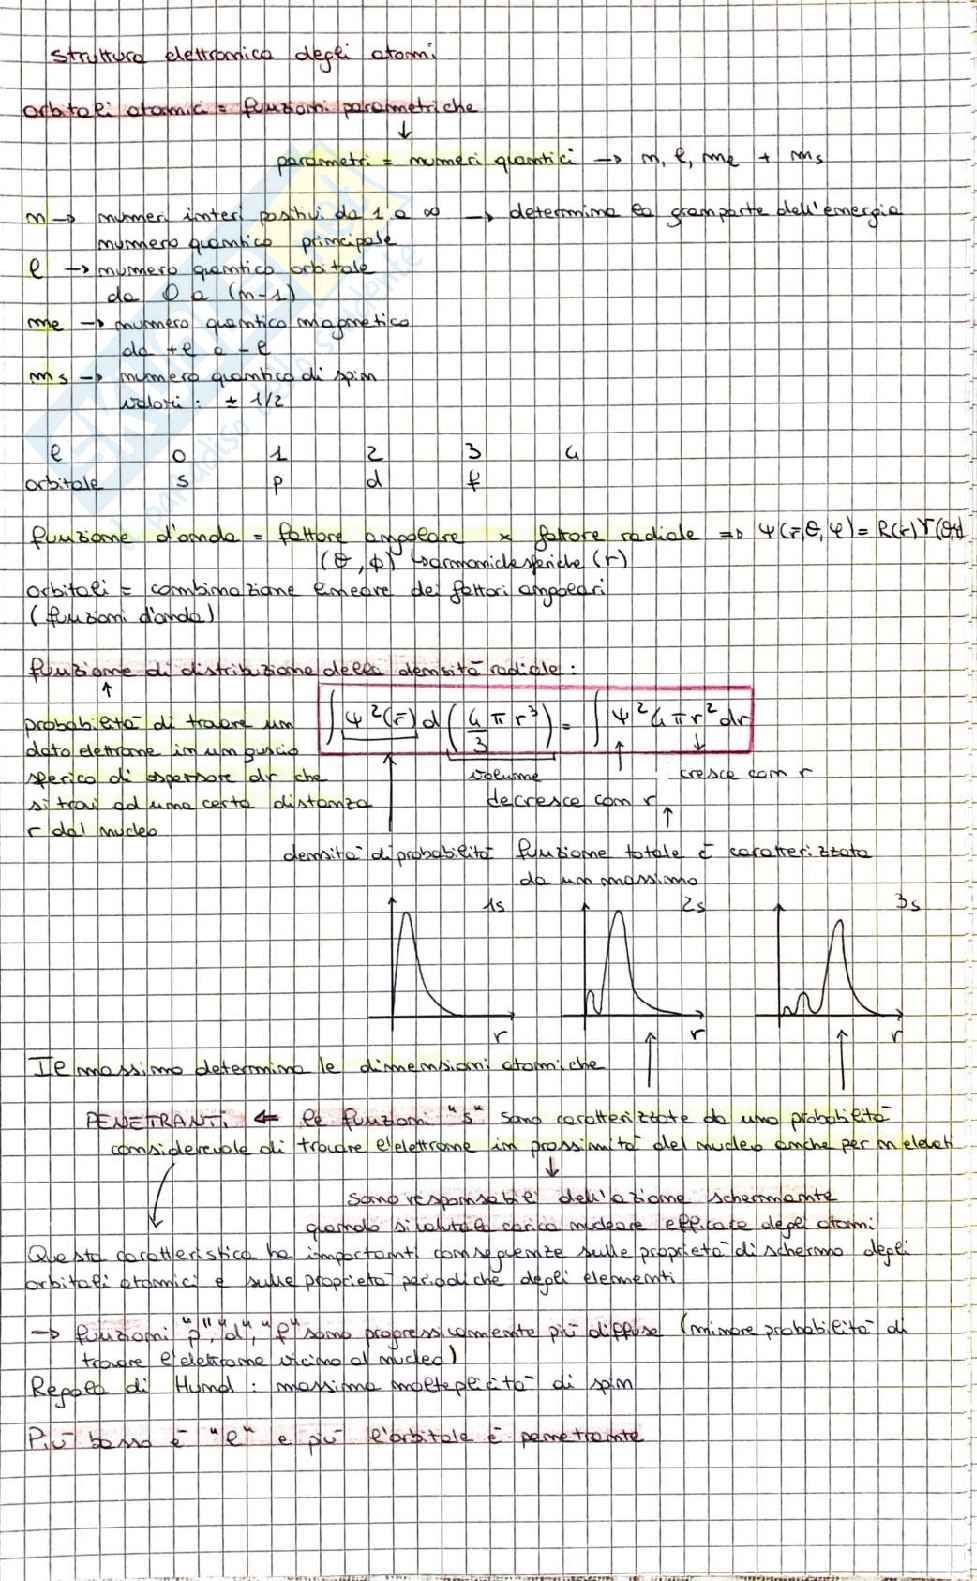 struttura elettronica degli atomi
orbitali atomici = funzioni parametriche
↓
parametri = numeri quantici → n, l, ml + ms
n → numeri interi positivi da 1 a ∞ → determina la gran parte dell'energia
numero quantico principale
l → numero quantico orbitale
da 0 a (n-1)
ml → numero quantico magnetico
da +l a -l
ms → numero quantico di spin
valori: ± 1/2
l 0 1 2 3 4
orbitale s p d f
funzione d'onda = fattore angolare × fattore radiale => Ψ(r,θ,φ) = R(r)Y(θ,φ)
(θ, ϕ) ↳ armoniche sferiche (r)
orbitali = combinazione lineare dei fattori angolari
(funzioni d'onda)
funzione di distribuzione della densità radiale:
↑
probabilità di trovare un
dato elettrone in un guscio
sferico di spessore dr che
si trovi ad una certa distanza
r dal nucleo
∫ Ψ²(r) d(4/3 π r³) = ∫ Ψ² 4πr² dr
volume
cresce con r
decresce con r
densità di probabilità
funzione totale è caratterizzata
da un massimo
1s 2s 3s
r r r
Il massimo determina le dimensioni atomiche
PENETRANTI ← le funzioni "s" sono caratterizzate da una probabilità
considerevole di trovare l'elettrone in prossimità del nucleo anche per n elevati
↓
sono responsabili dell'azione schermante
quando si valuta la carica nucleare efficace degli atomi
Questa caratteristica ha importanti conseguenze sulle proprietà di schermo degli
orbitali atomici e sulle proprietà periodiche degli elementi
→ funzioni "p", "d", "f" sono progressivamente più diffuse (minore probabilità di
trovare l'elettrone vicino al nucleo)
Regola di Hund: massima molteplicità di spin
Più basso è "l" e più l'orbitale è penetrante